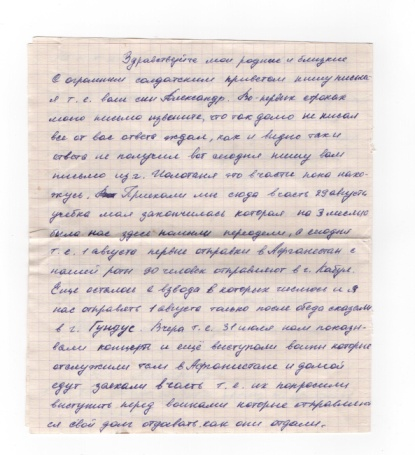 Здравствуйте мои родные и близкие
С огромным солдатским приветом пишу письмо
я т.е. ваш сын Александр. Во-первых строках
моего письма извените, что так долго не писал
все от вас ответа ждал, как и видно так и
ответа не получил вот сегодня пишу вам
письмо из г. Иолотаня что в части пока нахо-
жусь. Приехали мы сюда в часть 29 августа
учебка моя закончилась которая на 3 месяца
была нас здесь пополам переделили, а сегодня
т.е. 1 августа первые отправки в Афганистан с
нашей роты 90 человек отправляют в г. Кабул.
Еще осталось взвода в которых числюсь и я
нас отправлять 1 августа только после обеда сказали
в г. Гундус. Вчера т.е. 31 июля нам показы-
вали концерты и еще выступали воины которые
отслужили там в Афганистане и домой
едут заехали в часть т.е. их попросили
выступить перед воинами которые отправляют-
ся свой долг отдавать, как они отдали.